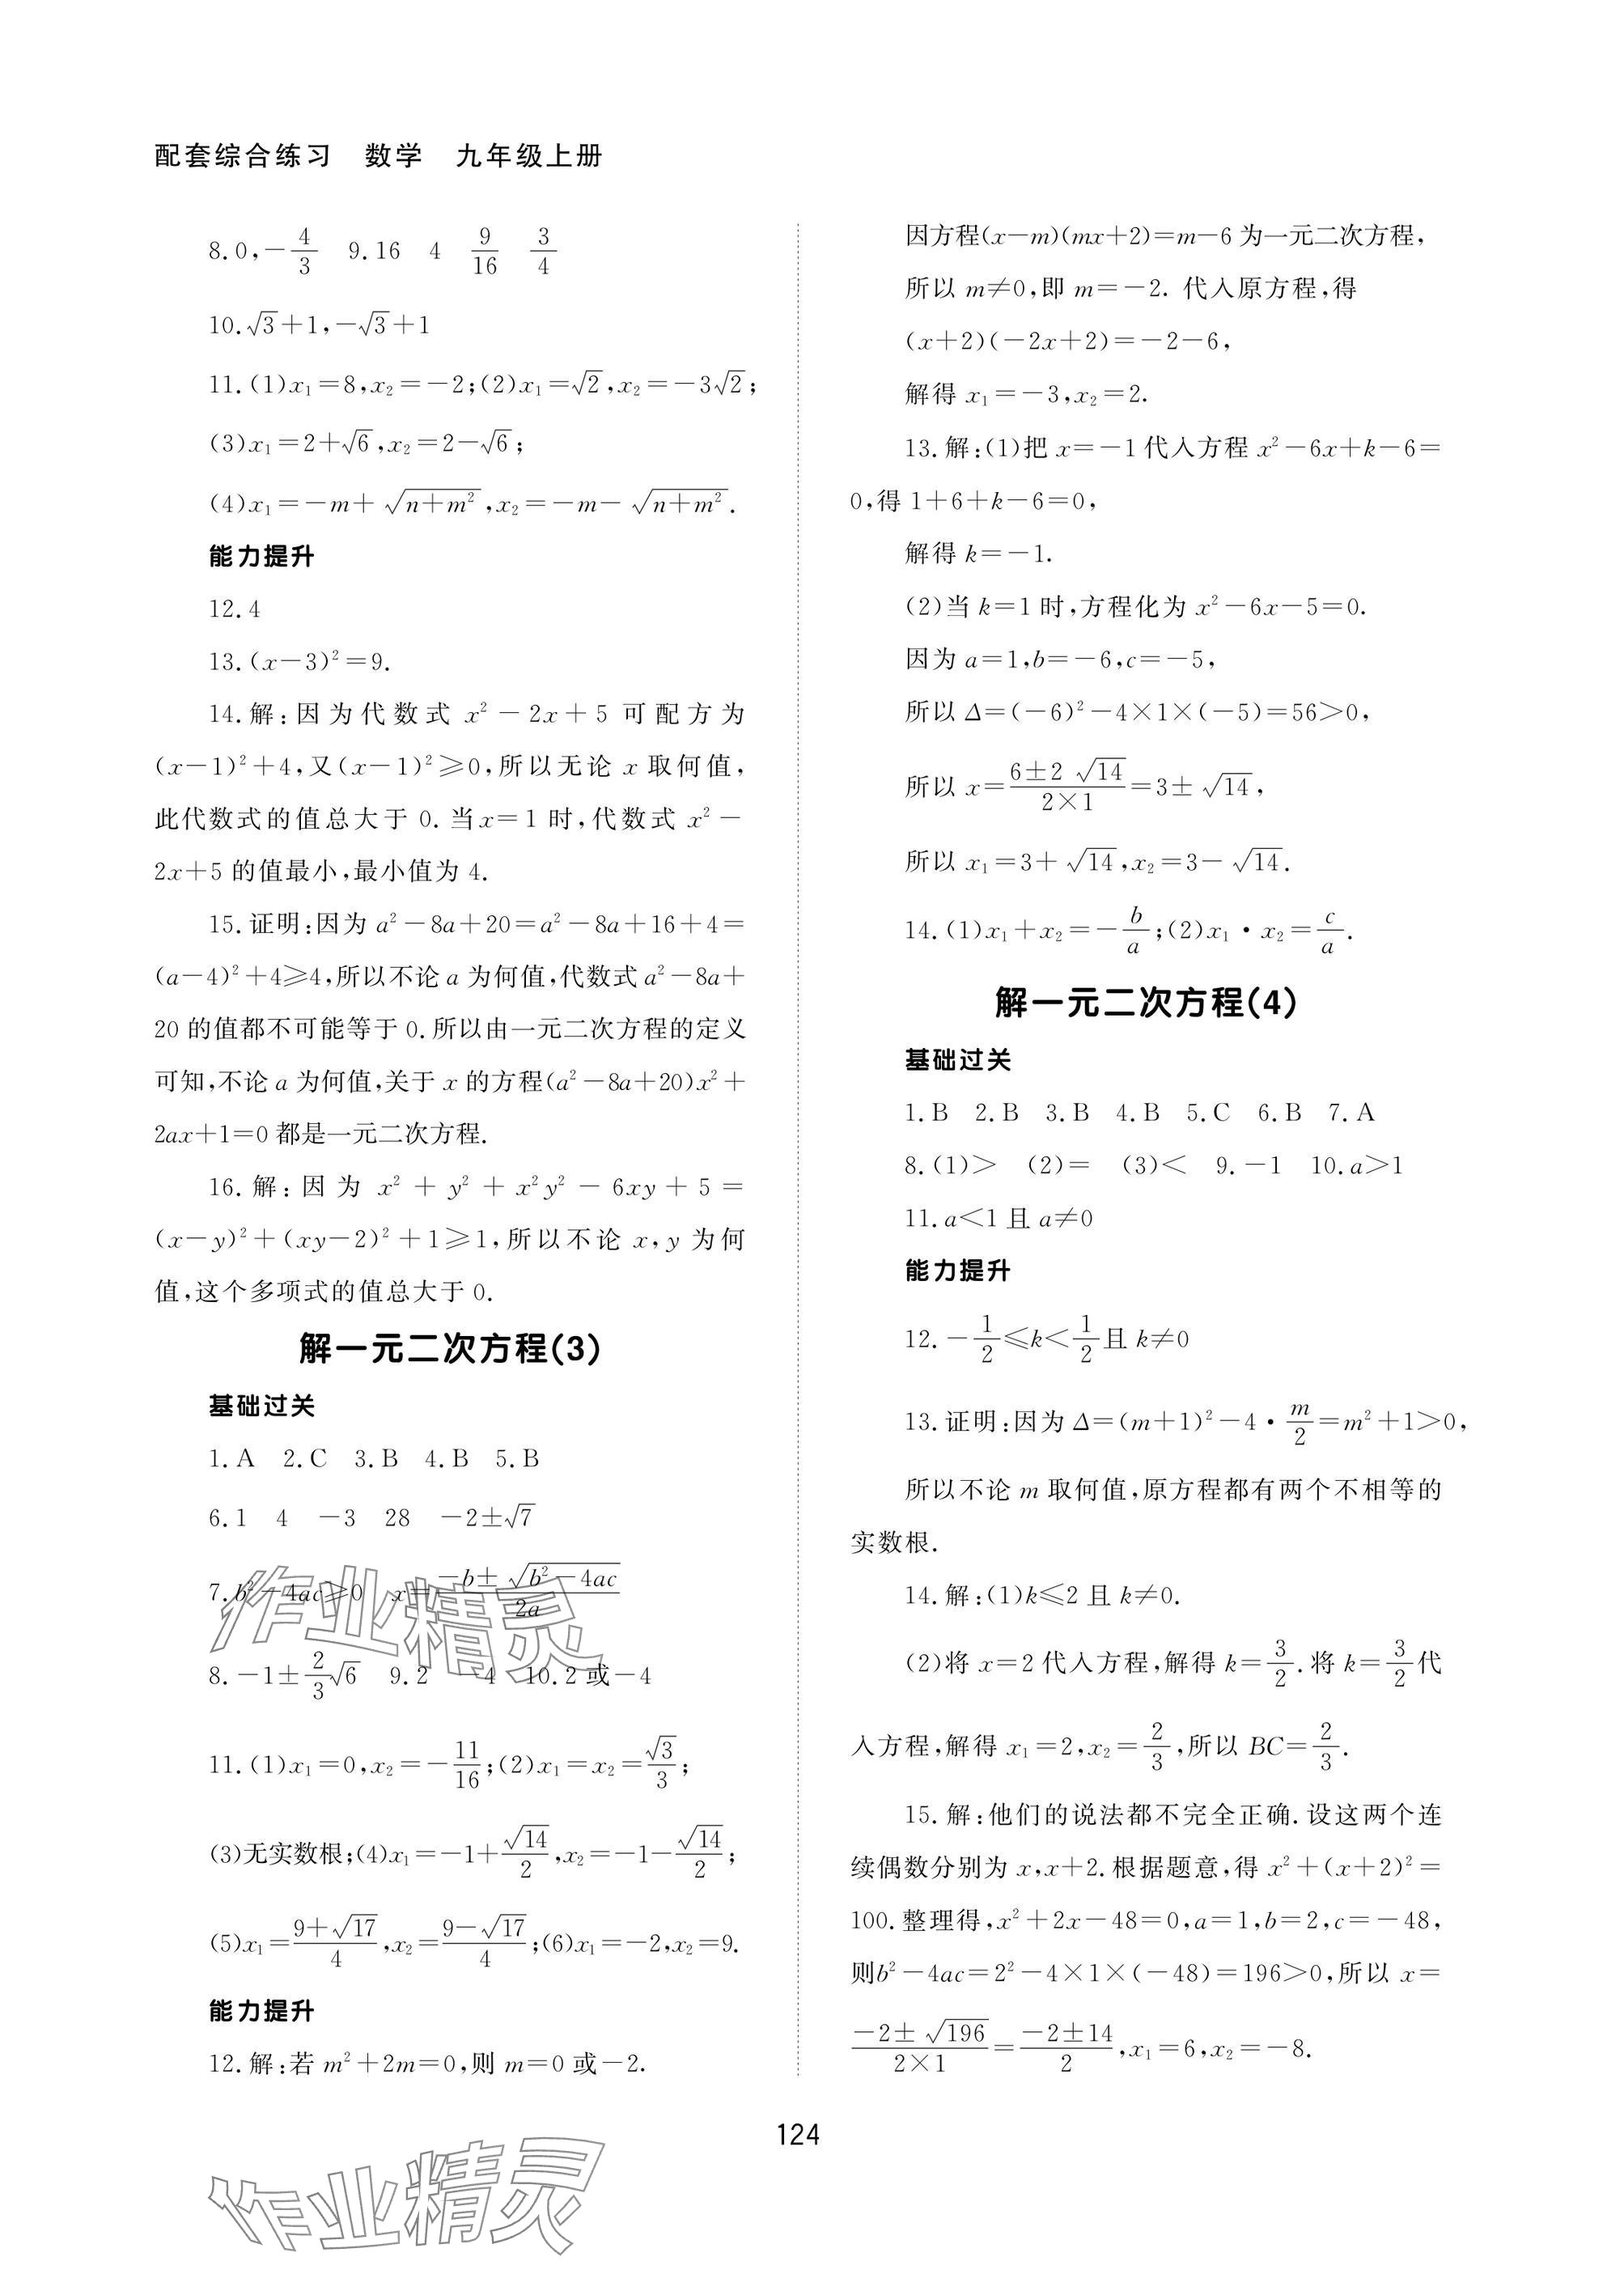 配套综合练习 数学 九年级上册
8.0,-4/3 9.16 4 9/16 3/4
10.√3+1,-√3+1
11.(1)x₁=8,x₂=-2;(2)x₁=√2,x₂=-3√2;
(3)x₁=2+√6,x₂=2-√6;
(4)x₁=-m+√(n+m²),x₂=-m-√(n+m²).
能力提升
12.4
13.(x-3)²=9.
14.解:因为代数式 x²-2x+5 可配方为
(x-1)²+4,又(x-1)²≥0,所以无论 x 取何值,
此代数式的值总大于 0.当x=1 时,代数式 x²-
2x+5 的值最小,最小值为 4.
15.证明:因为 a²-8a+20=a²-8a+16+4=
(a-4)²+4≥4,所以不论 a 为何值,代数式 a²-8a+
20 的值都不可能等于 0.所以由一元二次方程的定义
可知,不论 a 为何值,关于 x 的方程(a²-8a+20)x²+
2ax+1=0 都是一元二次方程.
16.解:因为 x²+y²+x²y²-6xy+5=
(x-y)²+(xy-2)²+1≥1,所以不论 x,y 为何
值,这个多项式的值总大于 0.
解一元二次方程(3)
基础过关
1.A 2.C 3.B 4.B 5.B
6.1 4 -3 28 -2±√7
7.b²-4ac≥0 x=(-b±√(b²-4ac))/2a
8.-1±2/3√6 9.2 -4 10.2 或-4
11.(1)x₁=0,x₂=-11/16;(2)x₁=x₂=√3/3;
(3)无实数根;(4)x₁=-1+√14/2,x₂=-1-√14/2;
(5)x₁=(9+√17)/4,x₂=(9-√17)/4;(6)x₁=-2,x₂=9.
能力提升
12.解:若 m²+2m=0,则 m=0 或-2.
因方程(x-m)(mx+2)=m-6 为一元二次方程,
所以 m≠0,即 m=-2. 代入原方程,得
(x+2)(-2x+2)=-2-6,
解得 x₁=-3,x₂=2.
13.解:(1)把 x=-1 代入方程 x²-6x+k-6=
0,得 1+6+k-6=0,
解得 k=-1.
(2)当 k=1 时,方程化为 x²-6x-5=0.
因为 a=1,b=-6,c=-5,
所以 Δ=(-6)²-4×1×(-5)=56>0,
所以 x=(6±2√14)/(2×1)=3±√14,
所以 x₁=3+√14,x₂=3-√14.
14.(1)x₁+x₂=-b/a;(2)x₁·x₂=c/a.
解一元二次方程(4)
基础过关
1.B 2.B 3.B 4.B 5.C 6.B 7.A
8.(1)> (2)= (3)< 9.-1 10.a>1
11.a<1 且 a≠0
能力提升
12.-1/2≤k<1/2且 k≠0
13.证明:因为 Δ=(m+1)²-4·m/2=m²+1>0,
所以不论 m 取何值,原方程都有两个不相等的
实数根.
14.解:(1)k≤2 且 k≠0.
(2)将 x=2 代入方程,解得 k=3/2.将 k=3/2代
入方程,解得 x₁=2,x₂=2/3,所以 BC=2/3.
15.解:他们的说法都不完全正确.设这两个连
续偶数分别为 x,x+2.根据题意,得 x²+(x+2)²=
100.整理得,x²+2x-48=0,a=1,b=2,c=-48,
则b²-4ac=2²-4×1×(-48)=196>0,所以 x=
(-2±√196)/(2×1)=(-2±14)/2,x₁=6,x₂=-8.
124
作业精灵
作业精灵